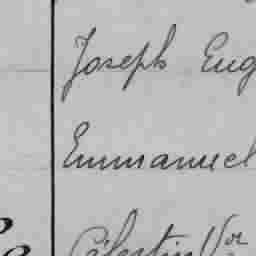 Joseph Eug
Emmanuel
Célestin